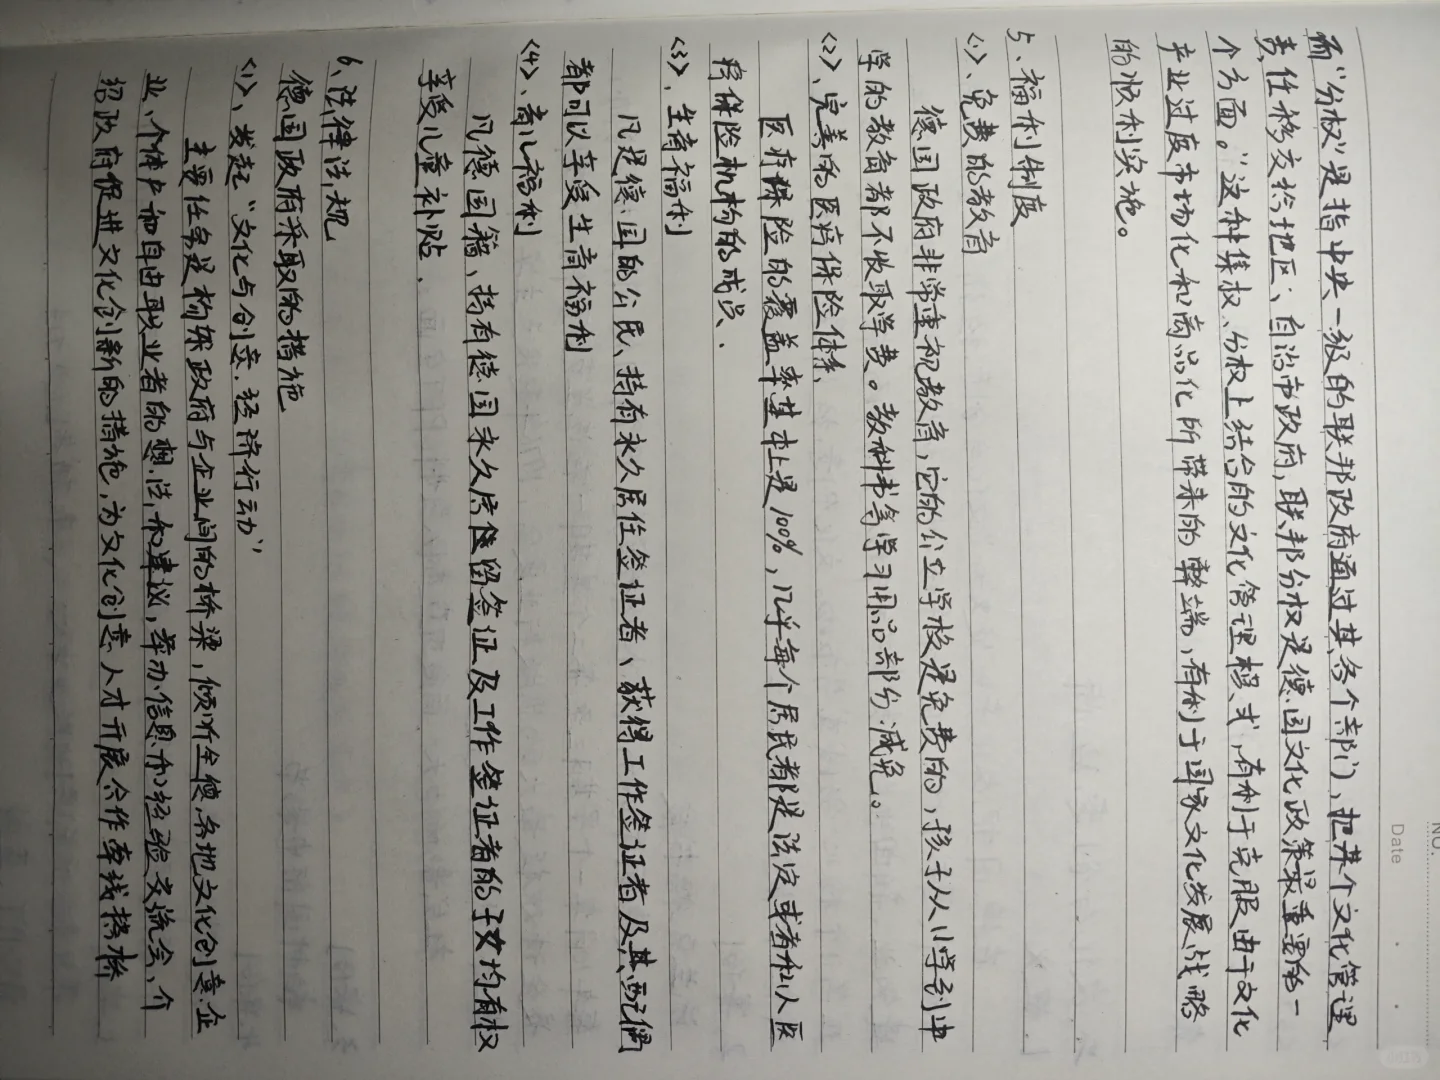 NO.
Date
而“分权”是指中央一级的联邦政府通过其各个部门,把其个文化管理
责任移交给地区、自治市政府,联邦分权是德国文化政策最重要的一
个方面。“这种集权、分权上结合的文化管理模式,有利于克服由于文化
产业过度市场化和商品化所带来的弊端,有利于国家文化发展战略
的顺利实施。
5、福利制度
<1>、免费的教育
德国政府非常重视教育,它的公立学校是免费的,孩子从小学到中
学的教育都不收取学费。教科书等学习用品部分减免。
<2>、完善的医疗保险体系、
医疗保险的覆盖率基本上是100%,几乎每个居民都是法定或者私人医
疗保险机构的成员、
<3>、生育福利
凡是德国的公民、持有永久居住签证者、获得工作签证者及其配偶
都可以享受生育福利
<4>、育儿福利
凡德国籍、持有德国永久居住留签证及工作签证者的子女均有权
享受儿童补贴、
6、法律法规
德国政府采取的措施
<1>、发起“文化与创意经济行动”
主要任务是构架政府与企业间的桥梁,倾听全德各地文化创意企
业、个体户和自由职业者的想法和建议,举办信息和经验交流会、介
绍政府促进文化创新的措施,为文化创意人才开展合作牵线搭桥